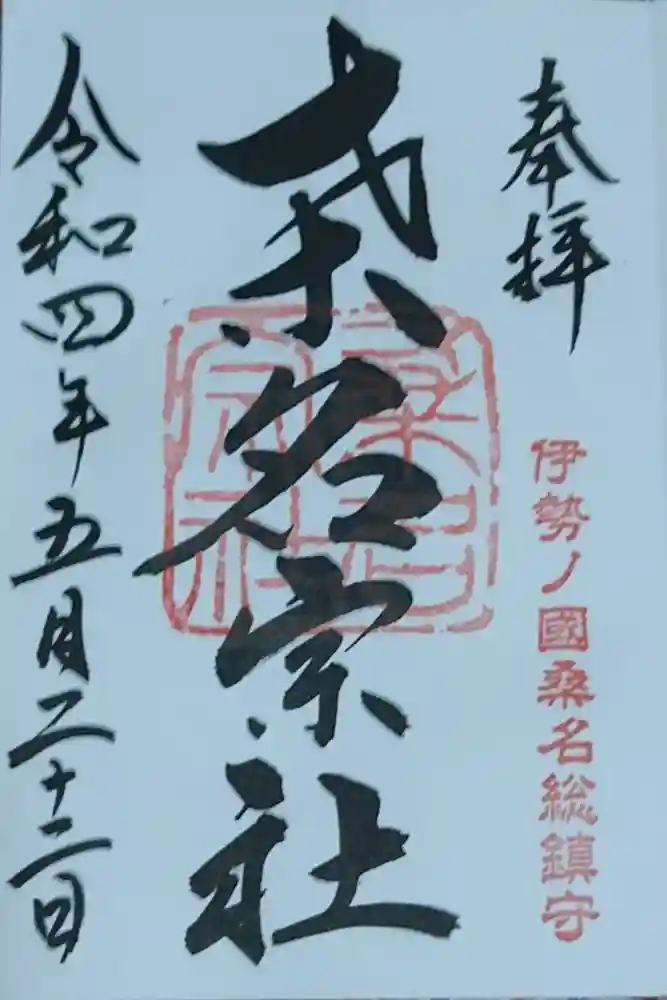 奉拝
伊勢ノ國桑名総鎮守
桑名宗社
桑名
宗社
令和四年五月二十二日